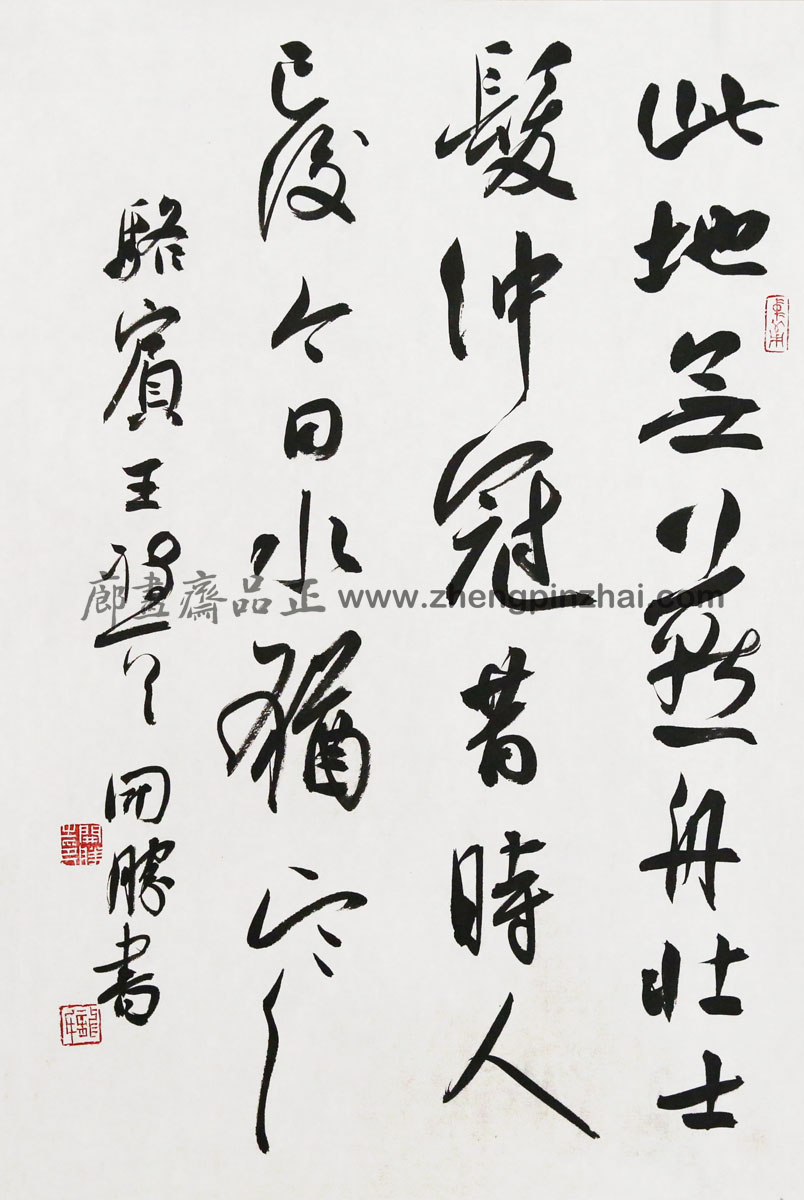 此地燕丹壯士
髮沖冠昔時人
已沒今日水猶寒
駱賓王 開勝書
正品齋畫廊 www.zhengpinzhai.com